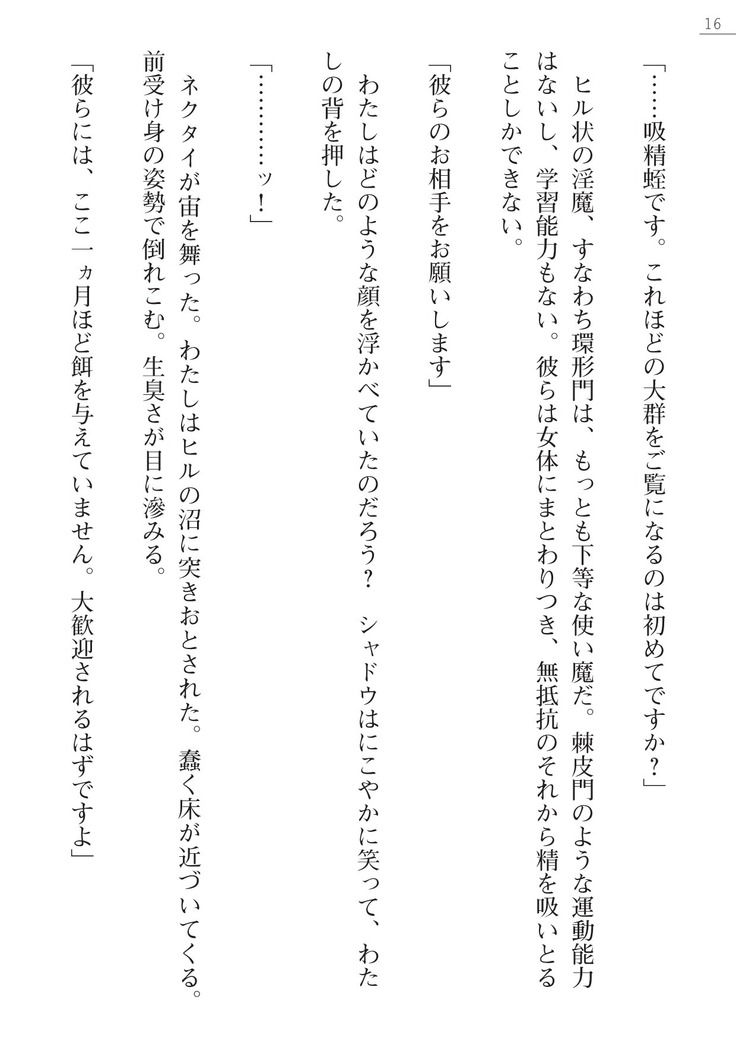 16
「……吸精蛭です。これほどの大群をご覧になるのは初めてですか？」
ヒル状の淫魔、すなわち環形門は、もっとも下等な使い魔だ。棘皮門のような運動能力
はないし、学習能力もない。彼らは女体にまとわりつき、無抵抗のそれから精を吸いとる
ことしかできない。
「彼らのお相手をお願いします」
わたしはどのような顔を浮かべていたのだろう？　シャドウはにこやかに笑って、わた
しの背を押した。
「…………ッ！」
ネクタイが宙を舞った。わたしはヒルの沼に突きおとされた。蠢く床が近づいてくる。
前受け身の姿勢で倒れこむ。生臭さが目に滲みる。
「彼らには、ここ一ヵ月ほど餌を与えていません。大歓迎されるはずですよ」